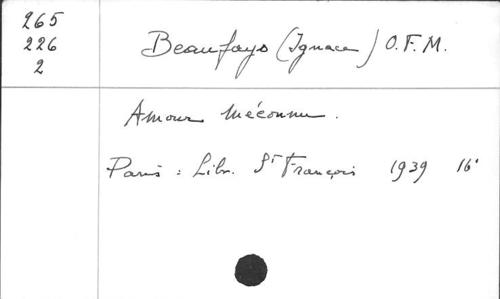 265
226
2
Beaufays (Ignace) O.F.M.
Amour méconnu.
Paris : Libr. St François 1939 16°